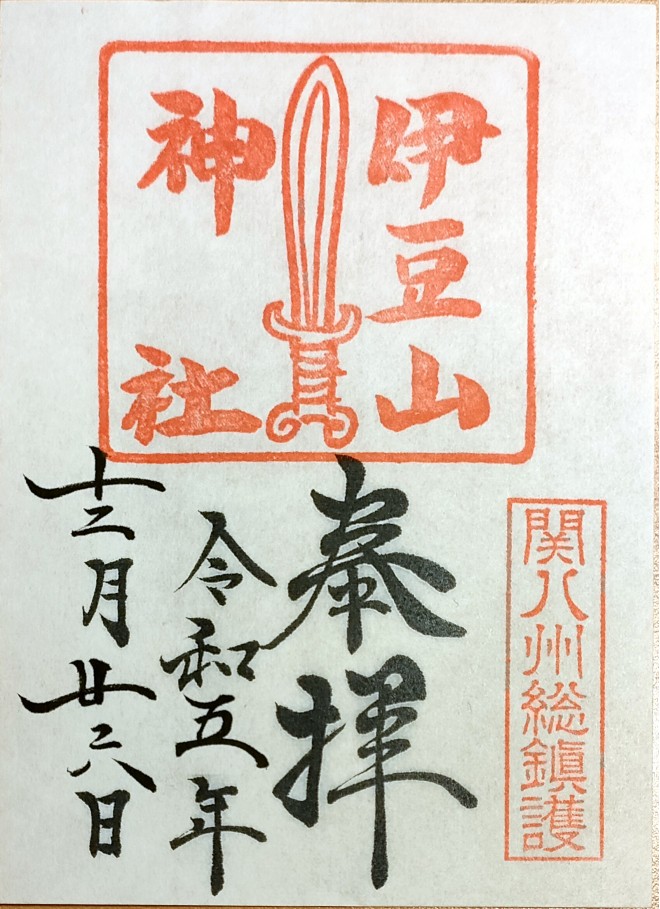 伊豆山
神社
関八州総鎮護
奉拝
令和五年
十二月廿六日